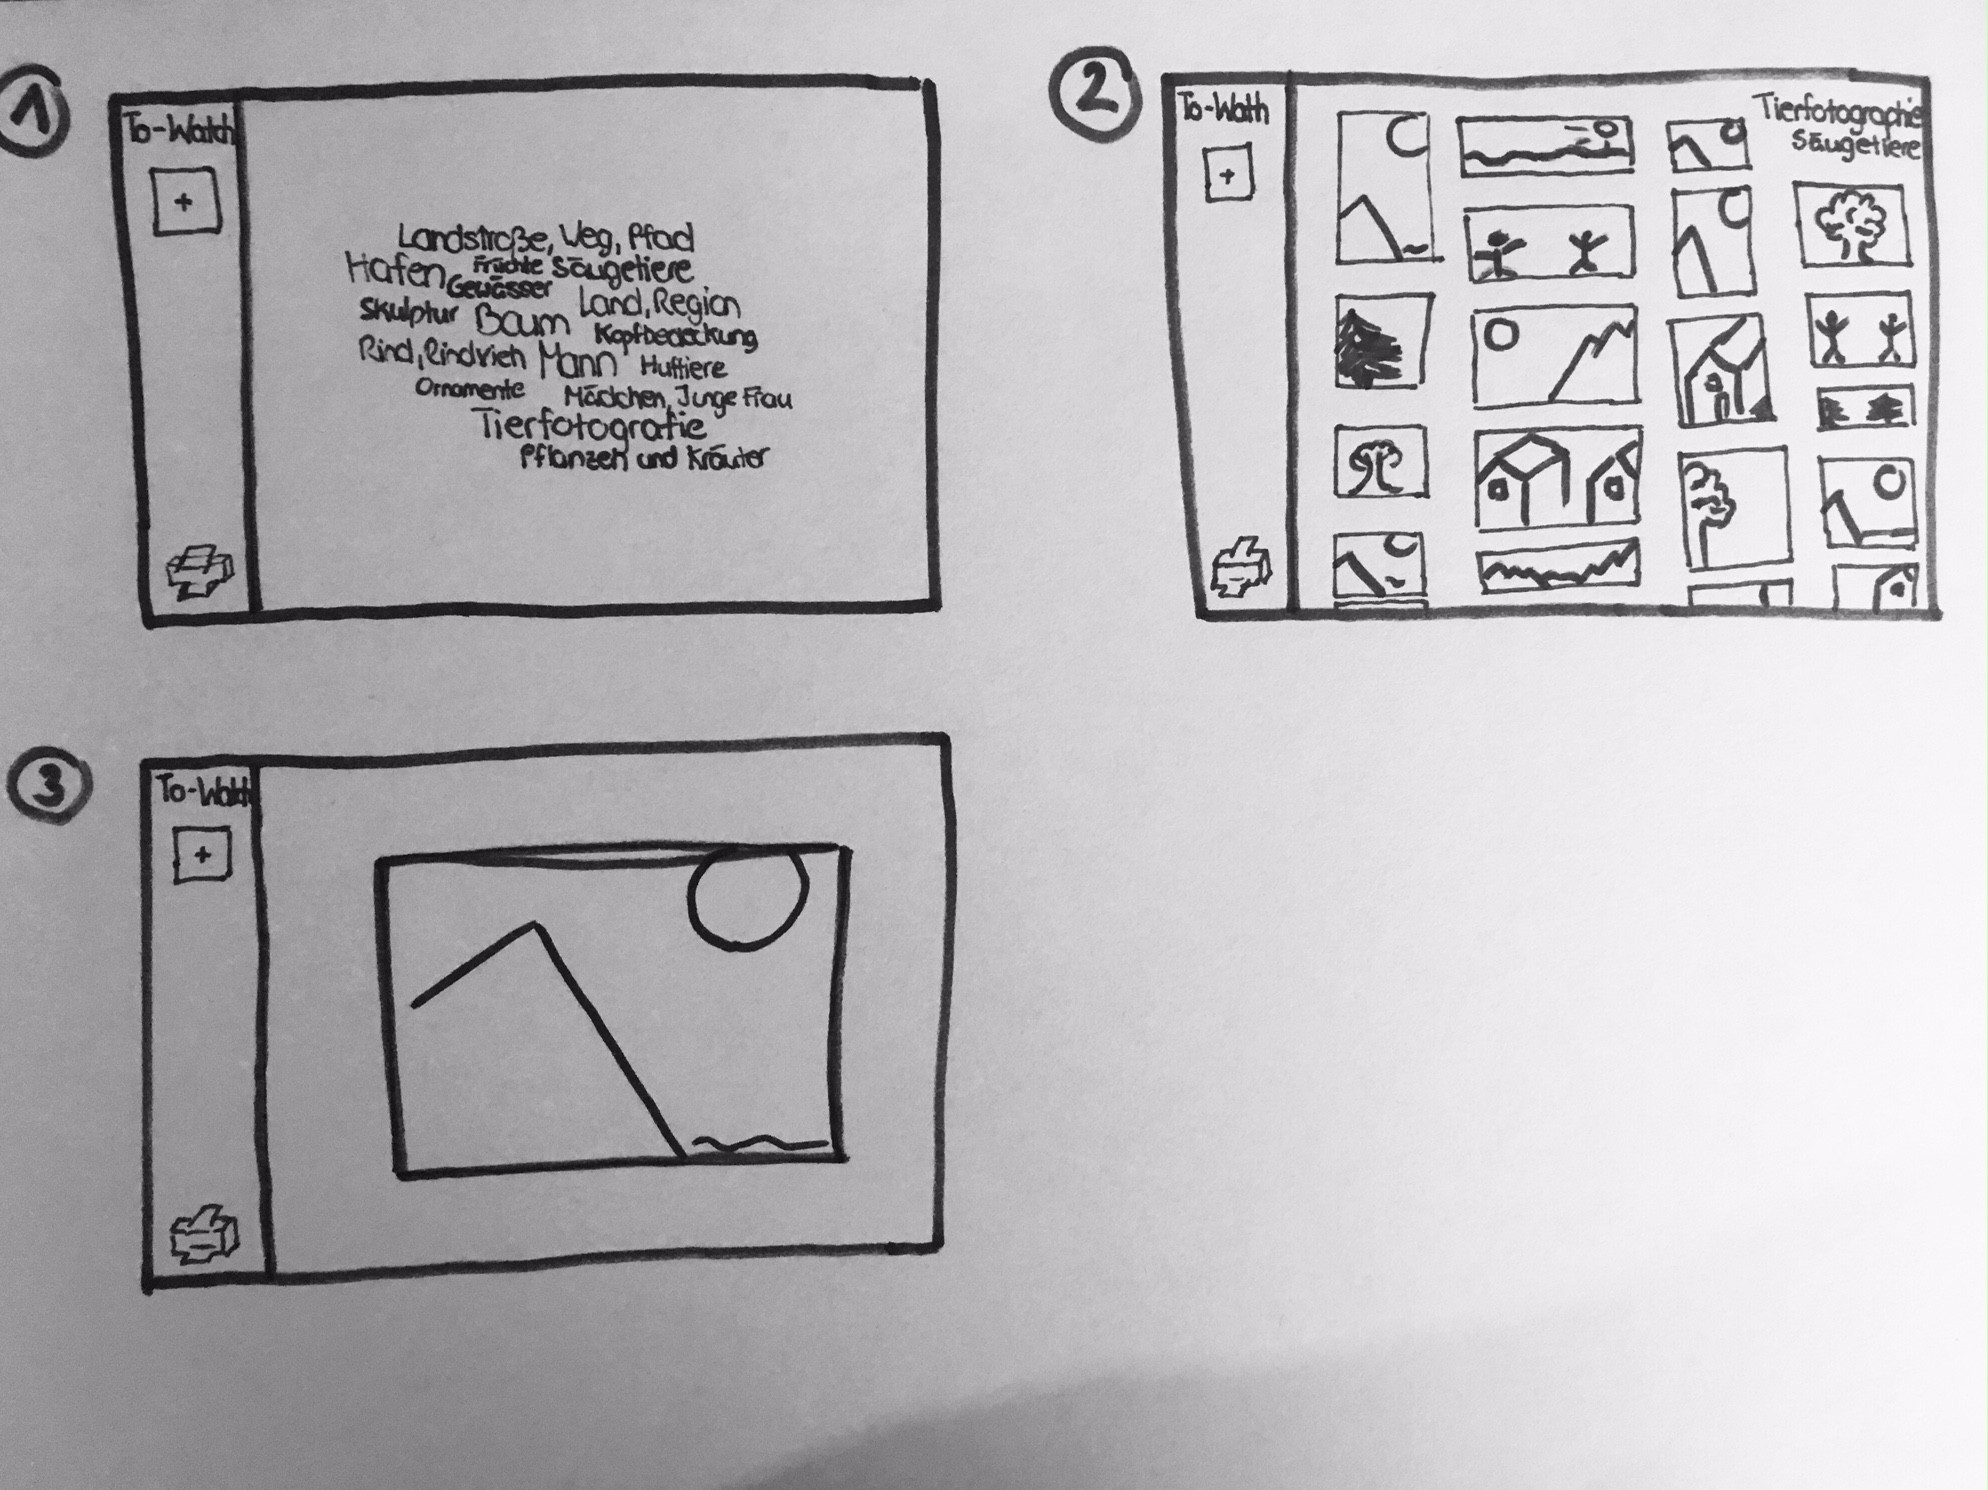 1
To-Watch
+
Landstraße, Weg, Pfad
Hafen Früchte Säugetiere
Gewässer Land, Region
Skulptur Baum Kopfbedeckung
Rind, Rindvieh Mann Huftiere
Ornamente Mädchen, Junge Frau
Tierfotografie
Pflanzen und Kräuter
2
To-Wath
+
Tierfotographie
Säugetiere
3
To-Watch
+